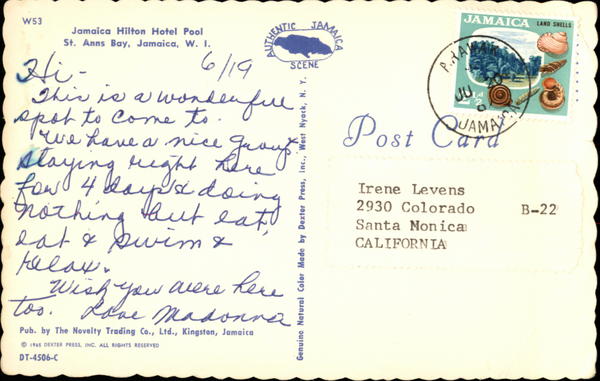 W53
Jamaica Hilton Hotel Pool
St. Anns Bay, Jamaica, W. I.
AUTHENTIC JAMAICA
SCENE
6/19
Hi -
This is a wonderful
spot to come to.
We have a nice group
staying right here
for 4 days & doing
nothing but eat,
eat & swim &
relax.
Wish you were here
too. Love Madonna
Pub. by The Novelty Trading Co., Ltd., Kingston, Jamaica
© 1965 DEXTER PRESS, INC. ALL RIGHTS RESERVED
DT-4506-C
Genuine Natural Color Made by Dexter Press, Inc., West Nyack, N. Y.
JAMAICA LAND SHELLS
JU 20
JAMAICA
Post Card
Irene Levens
2930 Colorado B-22
Santa Nonica
CALIFORNIA